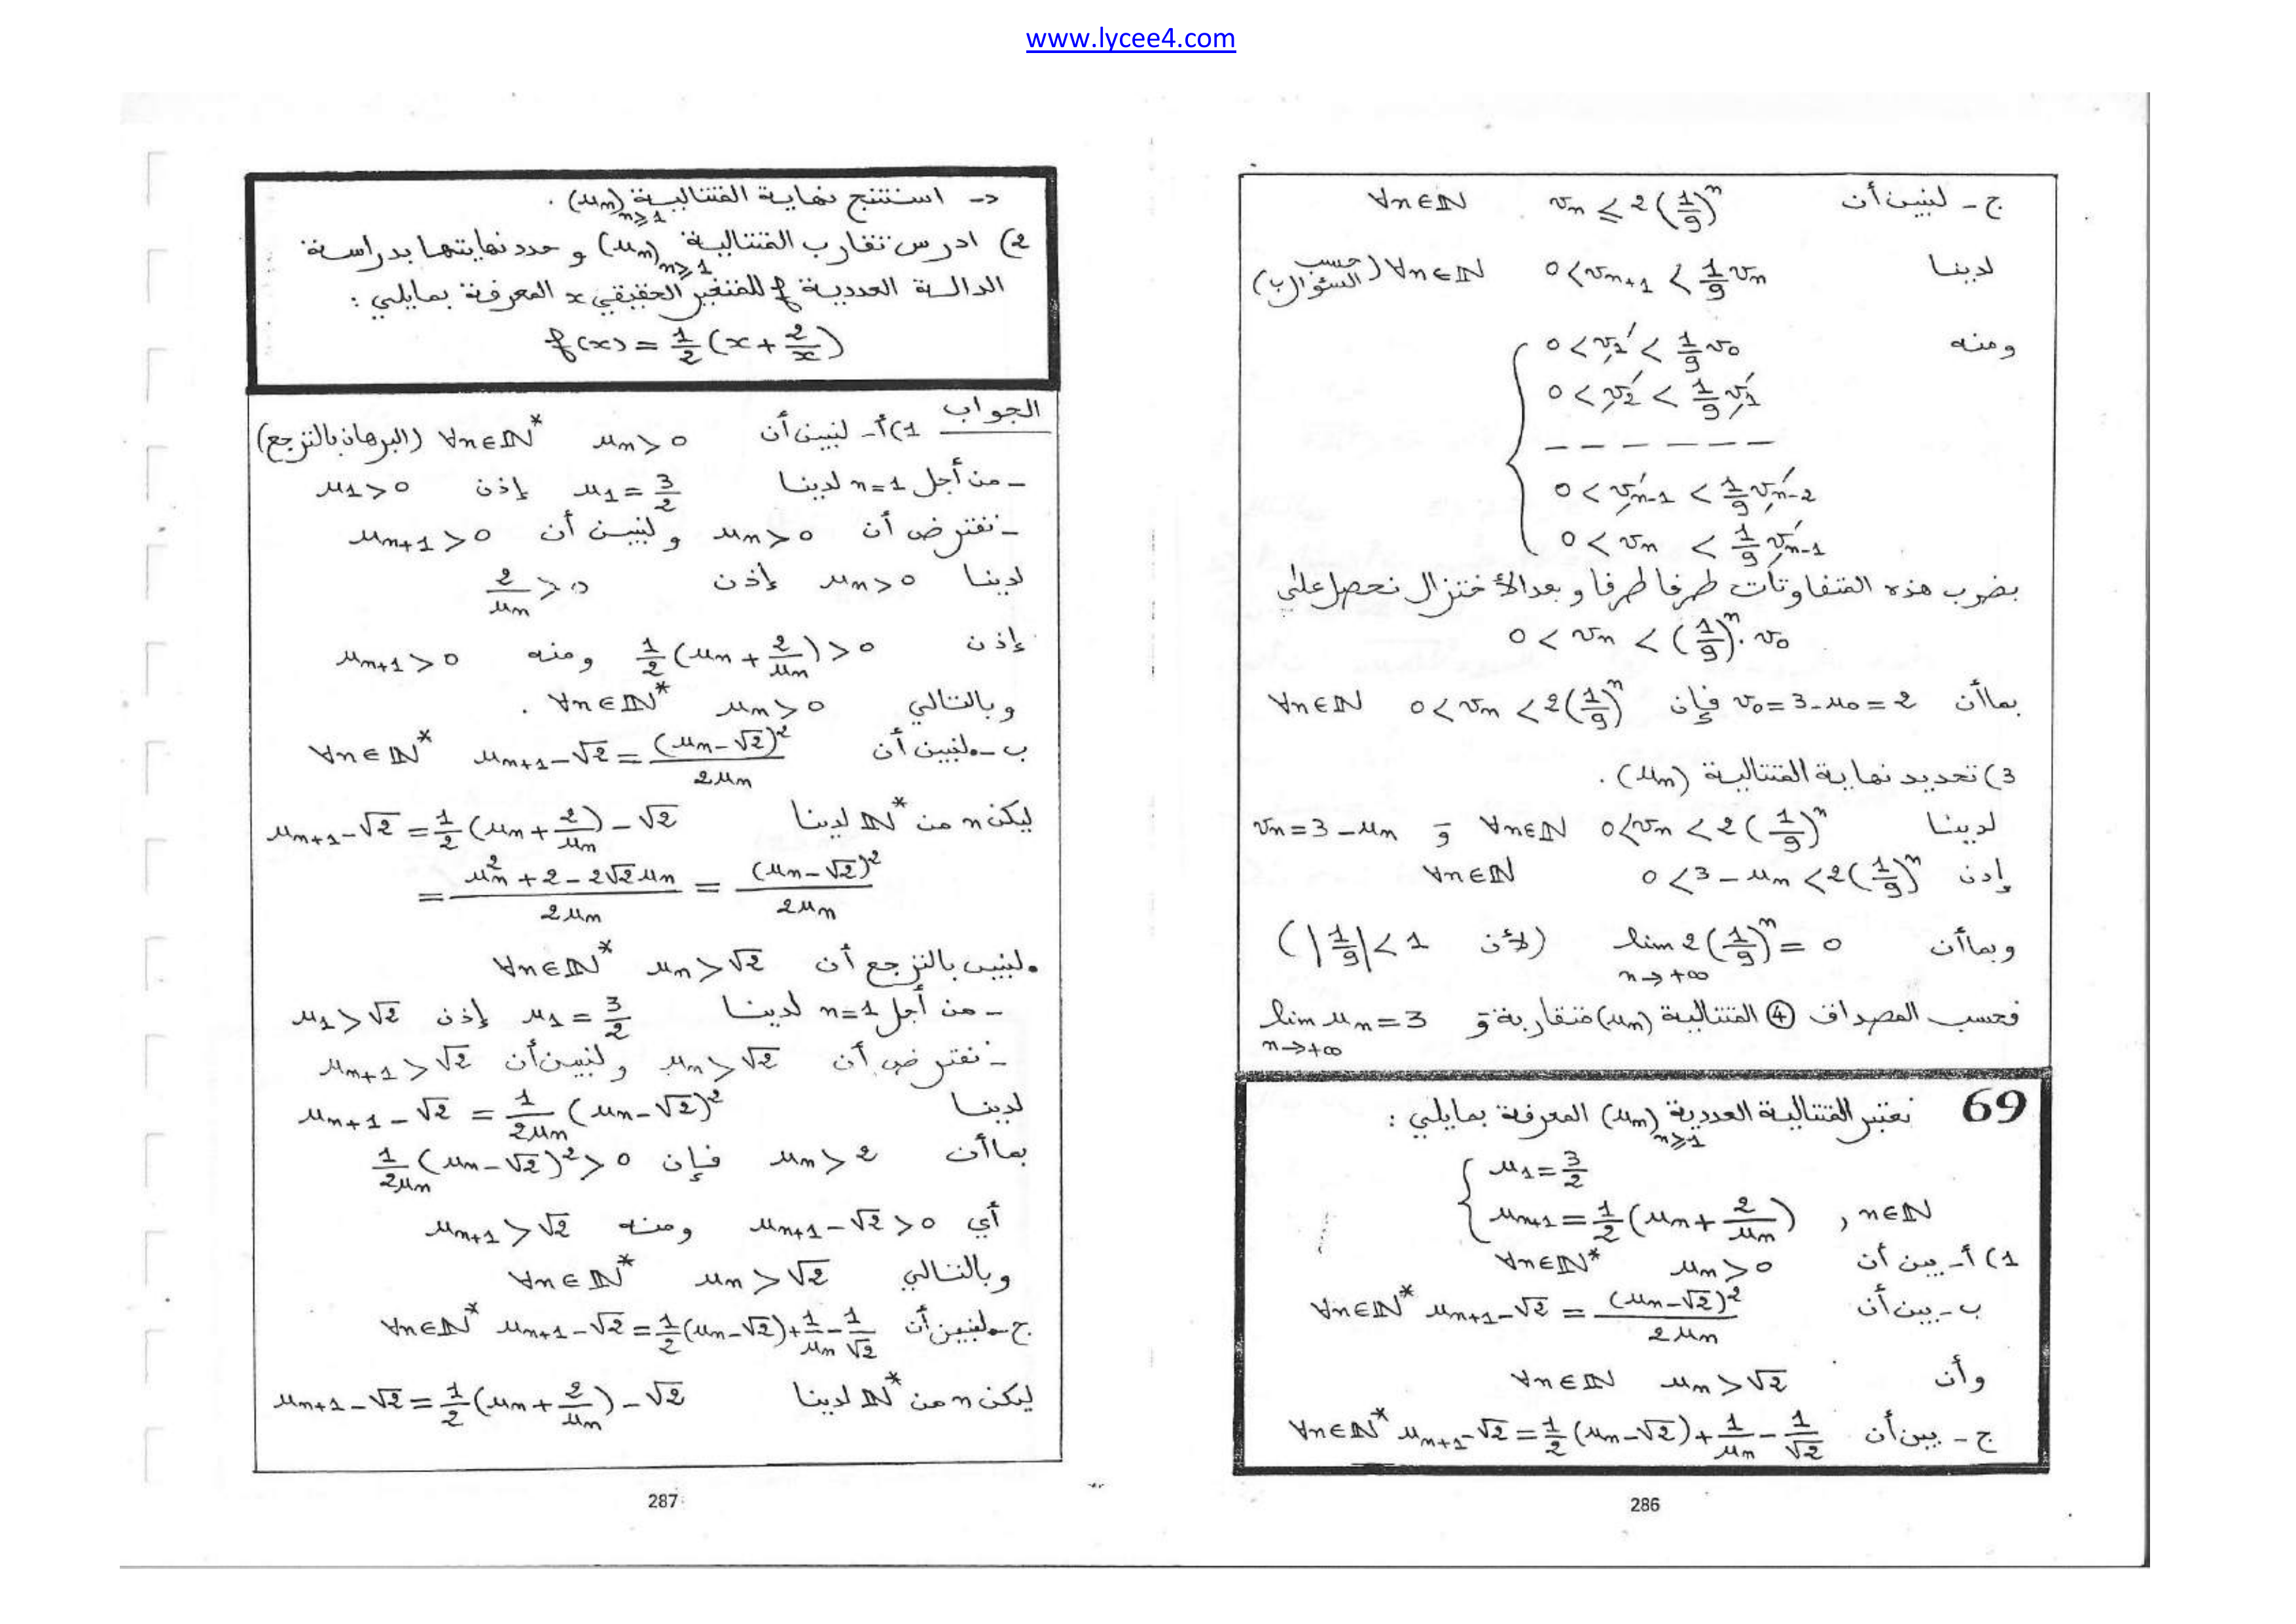 www.lycee4.com
ج - لنبين أن vₙ ≤ 2(1/9)ⁿ ∀n∈ℕ
لدينا 0<vₙ₊₁ < 1/9 vₙ ∀n∈ℕ (حسب السؤال ب)
ومنه 0 < v₁ < 1/9 v₀
0 < v₂ < 1/9 v₁
- - - - - - -
0 < vₙ₋₁ < 1/9 vₙ₋₂
0 < vₙ < 1/9 vₙ₋₁
بضرب هذه المتفاوتات طرفا طرفا و بعد الاختزال نحصل على
0 < vₙ < (1/9)ⁿ. v₀
بما أن v₀ = 3-u₀ = 2 فإن 0 < vₙ < 2(1/9)ⁿ ∀n∈ℕ
3) تحديد نهاية المتتالية (uₙ) .
لدينا 0<vₙ < 2(1/9)ⁿ ∀n∈ℕ و vₙ = 3 - uₙ
إذن 0 < 3 - uₙ < 2(1/9)ⁿ ∀n∈ℕ
وبما أن lim 2(1/9)ⁿ = 0 n→+∞ (لأن |1/9| < 1)
فحسب المصداق ④ المتتالية (uₙ) متقاربة و lim uₙ = 3 n→+∞
69 نعتبر المتتالية العددية (uₙ)n≥1 المعرفة بمايلي :
u₁ = 3/2
uₙ₊₁ = 1/2 (uₙ + 2/uₙ) , n∈ℕ
1) أ - بين أن uₙ > 0 ∀n∈ℕ*
ب - بين أن uₙ₊₁ - √2 = (uₙ - √2)²/2uₙ ∀n∈ℕ*
وأن uₙ > √2 ∀n∈ℕ
ج - بين أن uₙ₊₁ - √2 = 1/2 (uₙ - √2) + 1/uₙ - 1/√2 ∀n∈ℕ*
286
د - استنتج نهاية المتتالية (uₙ)n≥1 .
2) ادرس تقارب المتتالية (uₙ)n≥1 و حدد نهايتها بدراسة
الدالة العددية f للمتغير الحقيقي x المعرفة بمايلي :
f(x) = 1/2 (x + 2/x)
الجواب
1) أ - لنبين أن uₙ > 0 ∀n∈ℕ* (البرهان بالترجع)
- من أجل n=1 لدينا u₁ = 3/2 إذن u₁ > 0
- نفترض أن uₙ > 0 و لنبين أن uₙ₊₁ > 0
لدينا uₙ > 0 إذن 2/uₙ > 0
إذن 1/2 (uₙ + 2/uₙ) > 0 ومنه uₙ₊₁ > 0
وبالتالي uₙ > 0 ∀n∈ℕ* .
ب - • لنبين أن uₙ₊₁ - √2 = (uₙ - √2)²/2uₙ ∀n∈ℕ*
ليكن n من ℕ* لدينا uₙ₊₁ - √2 = 1/2 (uₙ + 2/uₙ) - √2
= (uₙ² + 2 - 2√2uₙ)/2uₙ = (uₙ - √2)²/2uₙ
• لنبين بالترجع أن uₙ > √2 ∀n∈ℕ*
- من أجل n=1 لدينا u₁ = 3/2 إذن u₁ > √2
- نفترض أن uₙ > √2 و لنبين أن uₙ₊₁ > √2
لدينا uₙ₊₁ - √2 = 1/2uₙ (uₙ - √2)²
بما أن uₙ > 2 فإن 1/2uₙ (uₙ - √2)² > 0
أي uₙ₊₁ - √2 > 0 ومنه uₙ₊₁ > √2
وبالتالي uₙ > √2 ∀n∈ℕ*
ج - • لنبين أن uₙ₊₁ - √2 = 1/2 (uₙ - √2) + 1/uₙ - 1/√2 ∀n∈ℕ*
ليكن n من ℕ* لدينا uₙ₊₁ - √2 = 1/2 (uₙ + 2/uₙ) - √2
287